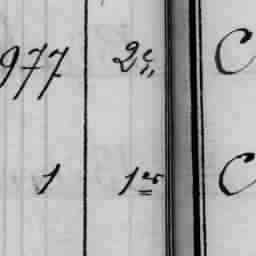 977 2e C
1 1er C